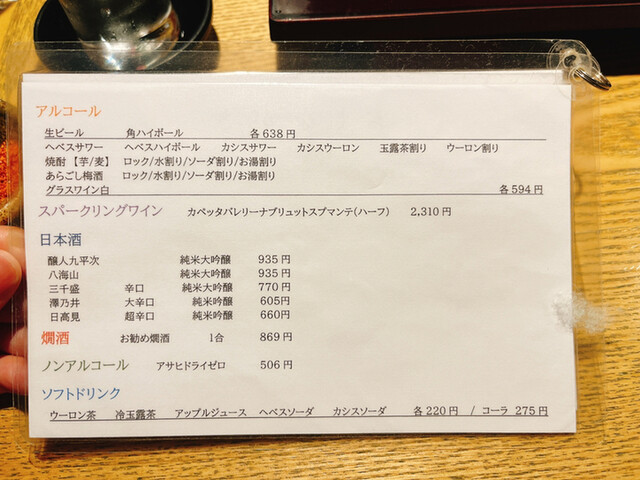 アルコール
生ビール 角ハイボール 各638円
ヘベスサワー ヘベスハイボール カシスサワー カシスウーロン 玉露茶割り ウーロン割り
焼酎【芋/麦】 ロック/水割り/ソーダ割り/お湯割り
あらごし梅酒 ロック/水割り/ソーダ割り/お湯割り
グラスワイン白 各594円
スパークリングワイン カペッタバレリーナブリュットスプマンテ(ハーフ) 2,310円
日本酒
醸人九平次 純米大吟醸 935円
八海山 純米大吟醸 935円
三千盛 辛口 純米大吟醸 770円
澤乃井 大辛口 純米吟醸 605円
日高見 超辛口 純米吟醸 660円
燗酒 お勧め燗酒 1合 869円
ノンアルコール アサヒドライゼロ 506円
ソフトドリンク
ウーロン茶 冷玉露茶 アップルジュース ヘベスソーダ カシスソーダ 各220円 / コーラ 275円